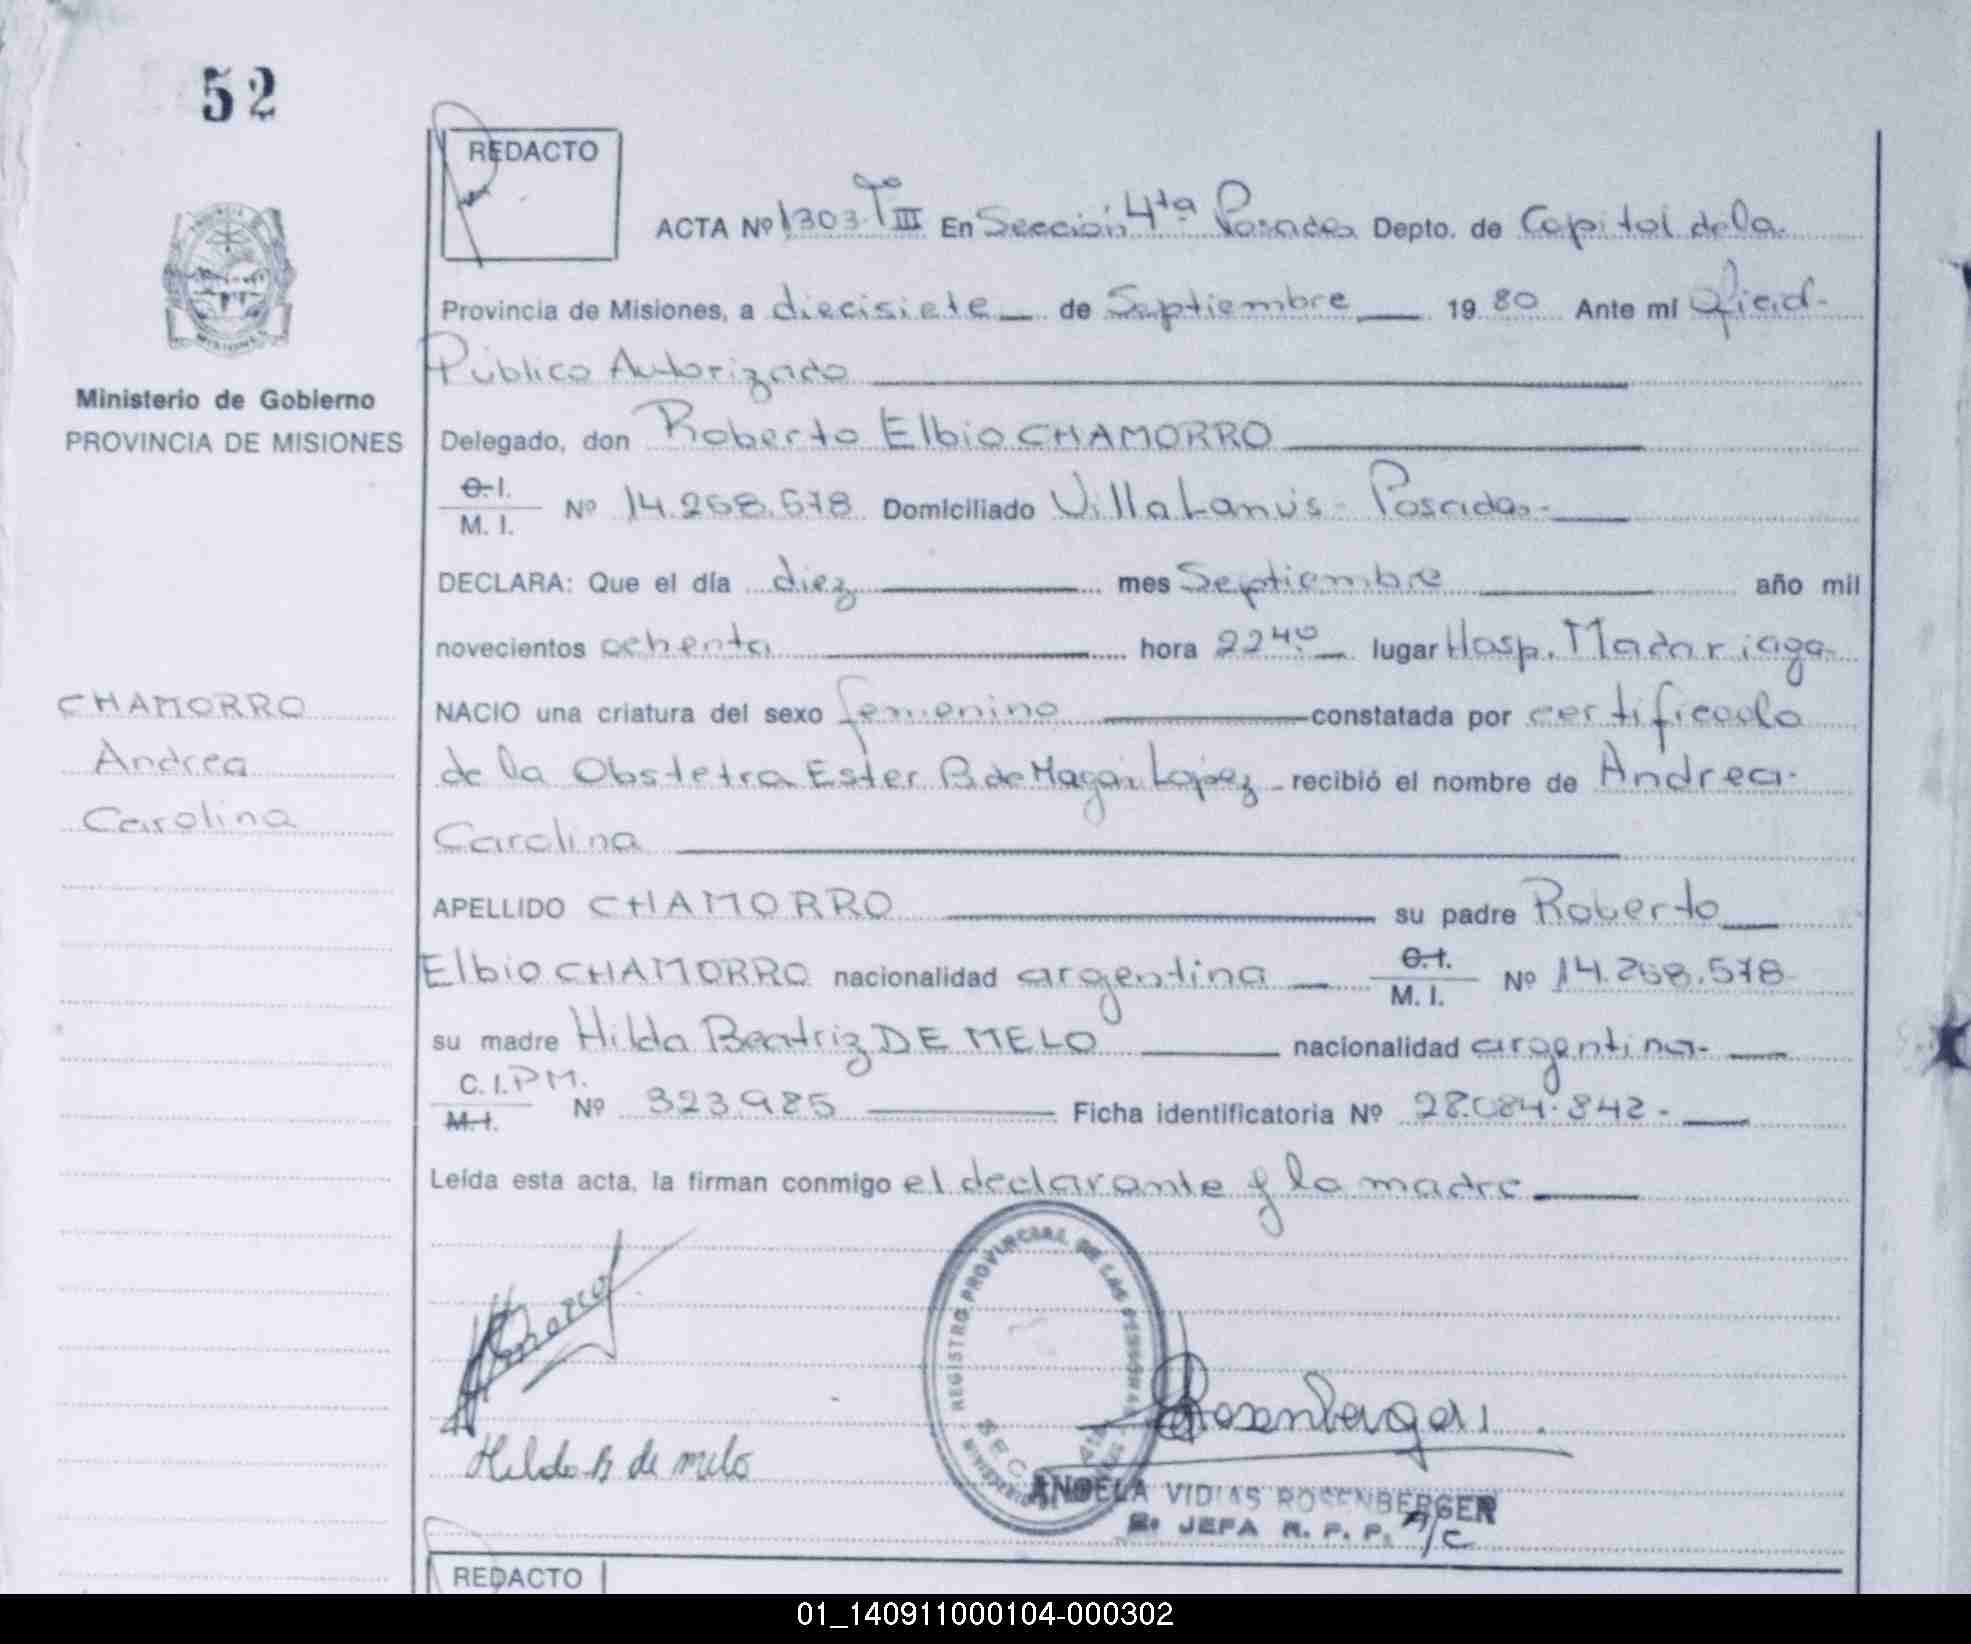 52
REDACTO
ACTA Nº 1303 Tº III En Sección 4ta Posadas Depto. de Capital de la
Provincia de Misiones, a diecisiete de Septiembre 1980 Ante mi Oficial
Público Autorizado
Ministerio de Gobierno
PROVINCIA DE MISIONES
Delegado, don Roberto Elbio CHAMORRO
C.I.
M. I. Nº 14.268.578 Domiciliado Villa Lanús - Posadas -
DECLARA: Que el día diez mes Septiembre año mil
novecientos ochenta hora 22 40 lugar Hosp. Madariaga
CHAMORRO
Andrea
Carolina
NACIO una criatura del sexo femenino constatada por certificado
de la Obstetra Ester B. de Lopez recibió el nombre de Andrea
Carolina
APELLIDO CHAMORRO su padre Roberto
Elbio CHAMORRO nacionalidad argentina C.I.
M. I. Nº 14.268.578
su madre Hilda Beatriz DE MELO nacionalidad argentina
C. I. P M.
M. I. Nº 323.985 Ficha identificatoria Nº 28.084.842 -
Leída esta acta, la firman conmigo el declarante y la madre
REGISTRO PROVINCIAL DE LAS PERSONAS
Hilda B de melo
Rosenberger
ANGELA VIDIAS ROSENBERGER
JEFA R. P. P. A/C
REDACTO
01_140911000104-000302